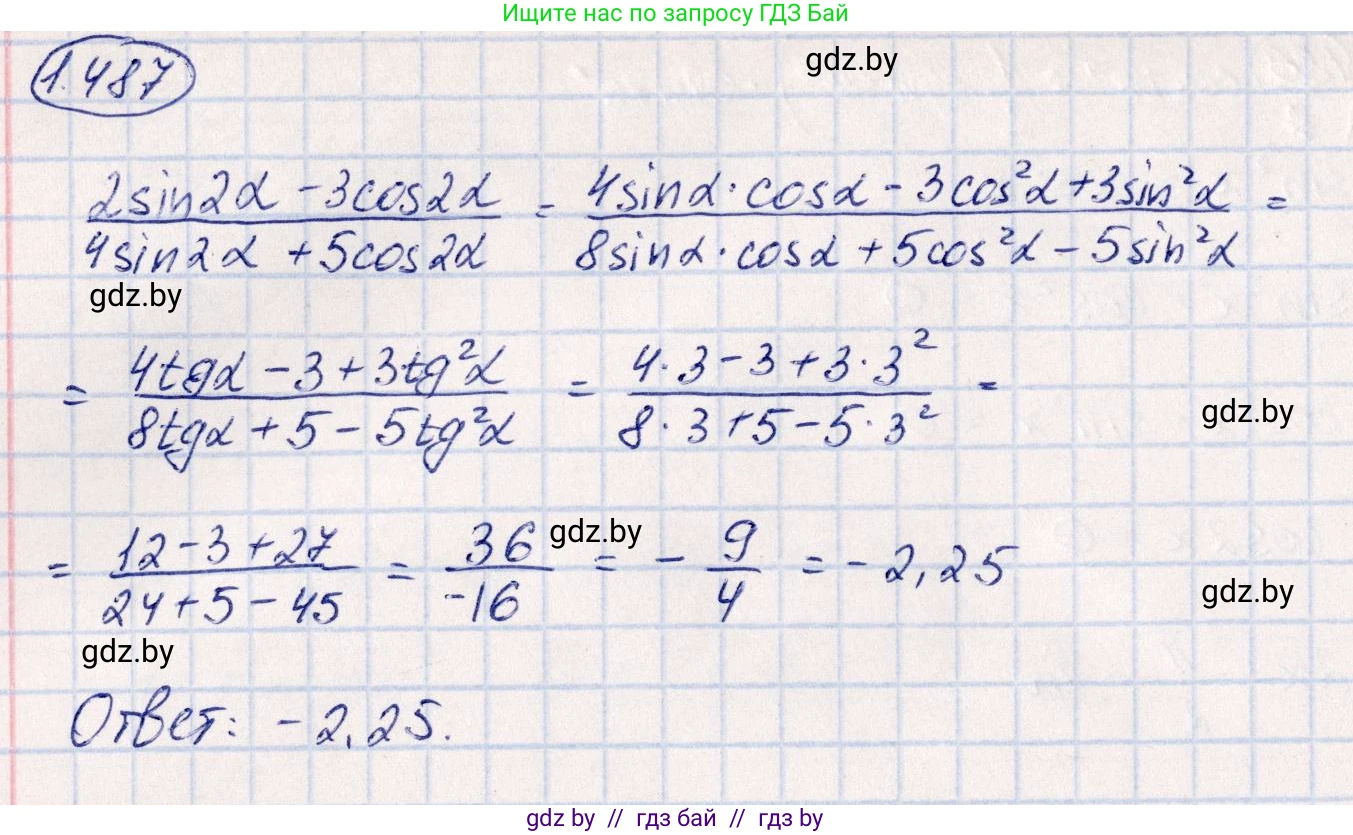 Ищите нас по запросу ГДЗ Бай
1.487
gdz.by
(2sin2α - 3cos2α)/(4sin2α + 5cos2α) = (4sinα·cosα - 3cos²α + 3sin²α)/(8sinα·cosα + 5cos²α - 5sin²α) =
gdz.by
= (4tgα - 3 + 3tg²α)/(8tgα + 5 - 5tg²α) = (4·3 - 3 + 3·3²)/(8·3 + 5 - 5·3²) =
gdz.by
= (12 - 3 + 27)/(24 + 5 - 45) = 36/(-16) = - 9/4 = -2,25
gdz.by
gdz.by
gdz.by
Ответ: -2,25.
gdz by // гдз бай // гдз by